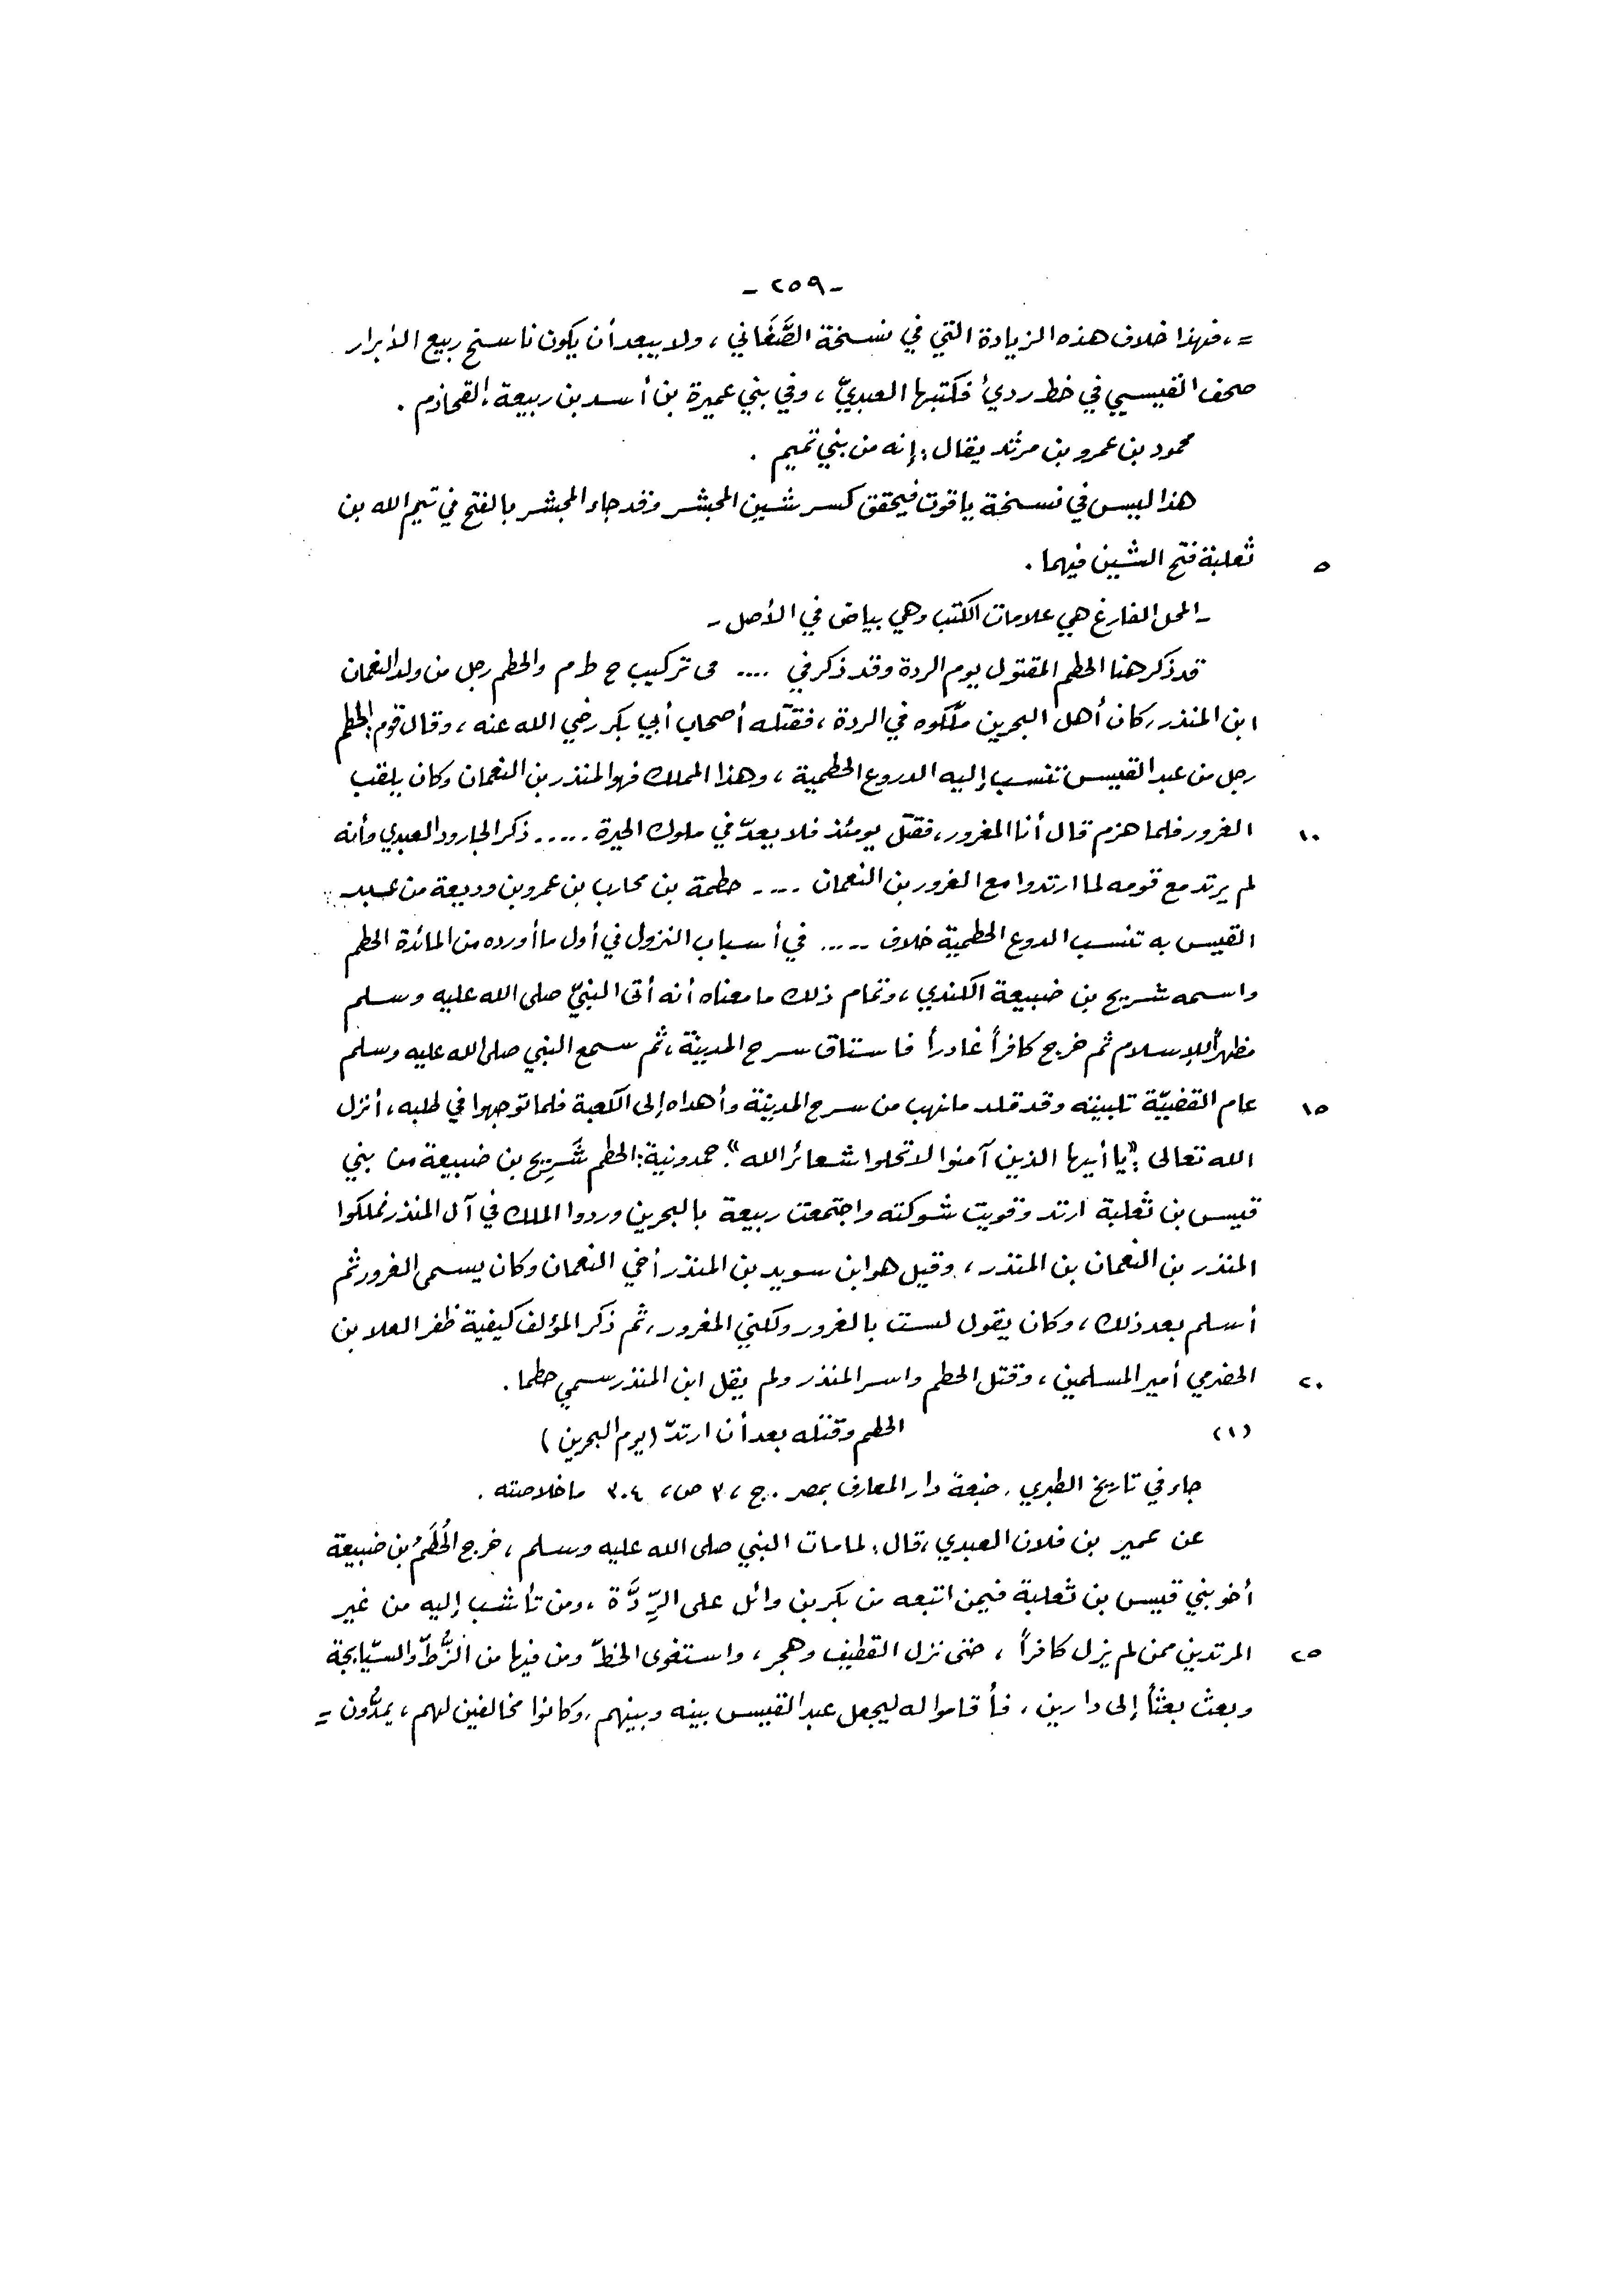 - ٢٥٩ -
= ، فهذا خلاف هذه الزيادة التي في نسخة الصَّغَاني ، ولا يبعد أن يكون ناسخ ربيع الأبرار
صحف القيسي في خط رديْ فكتبها العبديّ ، وفي بني عميرة بن أسد بن ربيعة ، القحاذم .
محمود بن عمرو بن مرثد يقال : إنه من بني تميم .
هذا ليس في نسخة ياقوت فيحقق كسر شين المحبشر وقد جاء المجشر بالفتح في تيم الله بن
ثعلبة فتح الشين فيهما . ٥
- المحل الفارغ هي علامات الكتب وهي بياض في الأصل -
قد ذكر هنا الحطم المقتول يوم الردة وقد ذكر في .... مى تركيب ح ط م والحطم رجل من ولد النعمان
ابن المنذر ، كان أهل البحرين ملّكوه في الردة ، فقتله أصحاب أبي بكر رضي الله عنه ، وقال قوم : الحطم
رجل من عبد القيس تنسب إليه الدروع الحطمية ، وهذا المملك فهو المنذر بن النعمان وكان يلقب
الغرور فلما هزم قال أنا المغرور ، فقتل يومئذ فلا يعدّ في ملوك الحيرة ..... ذكر الجارود العبدي وأنه ١٠
لم يرتد مع قومه لما ارتدوا مع الغرور بن النعمان .... حطمة بن محارب بن عمرو بن وديعة من عبد
القيس به تنسب الدوع الحطمية خلاف ..... في أسباب النزول في أول ما أورده من المائدة الحطم
واسمه شريح بن ضبيعة الكندي ، وتمام ذلك ما معناه أنه أتى النبيّ صلى الله عليه وسلم
مظهراً للإسلام ثم خرج كافراً غادراً فاستاق سرح المدينة ، ثم سمع النبي صلى الله عليه وسلم
عام القضيّة تلبيته وقد قلد ما نهب من سرح المدينة وأهداه إلى الكعبة فلما توجهوا في طلبه ، أنزل ١٥
الله تعالى : " يا أيها الذين آمنوا لا تحلوا شعائر الله " . حمدونية : الحطم شَرِيح بن ضبيعة من بني
قيس بن ثعلبة ارتد وقويت شوكته واجتمعت ربيعة بالبحرين وردوا الملك في آل المنذر فملكوا
المنذر بن النعمان بن المنذر ، وقيل هو ابن سويد بن المنذر أخي النعمان وكان يسمى الغرور ثم
أسلم بعد ذلك ، وكان يقول لست بالغرور ولكني المغرور ، ثم ذكر المؤلف كيفية ظفر العلا بن
الحضرمي أمير المسلمين ، وقتل الحطم واسر المنذر ولم يقل ابن المنذر سمي حطما . ٢٠
(١) الحطم وقتله بعد أن ارتدّ ( يوم البحرين )
جاء في تاريخ الطبري ، طبعة دار المعارف بمصر . ج ، ٣ ص ، ٣٠٤ ما خلاصته .
عن عمير بن فلان العبدي ، قال : لما مات النبي صلى الله عليه وسلم ، خرج الحُطَمُ بن ضبيعة
أخو بني قيس بن ثعلبة فيمن اتبعه من بكر بن وائل على الرِّدَّة ، ومن تأشب إليه من غير
المرتدين ممن لم يزل كافراً ، حتى نزل القطيف وهجر ، واستغوى الخطّ ومن فيها من الزُّطّ والسيّابجة ٢٥
وبعث بعثاً إلى دارين ، فأقاموا له ليجعل عبد القيس بينه وبينهم ، وكانوا مخالفين لهم ، يمدُّون =